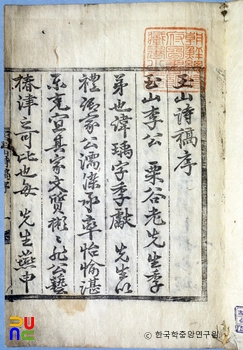 玉山詩稿序
玉山李公 栗谷老先生季
弟也諱瑀字季獻 先生以
禮 家公濡染承率怡愉湛
樂克宜其家文質彬〻非公藝
椿津之可比也每 先生燕申
© 한국학중앙연구원